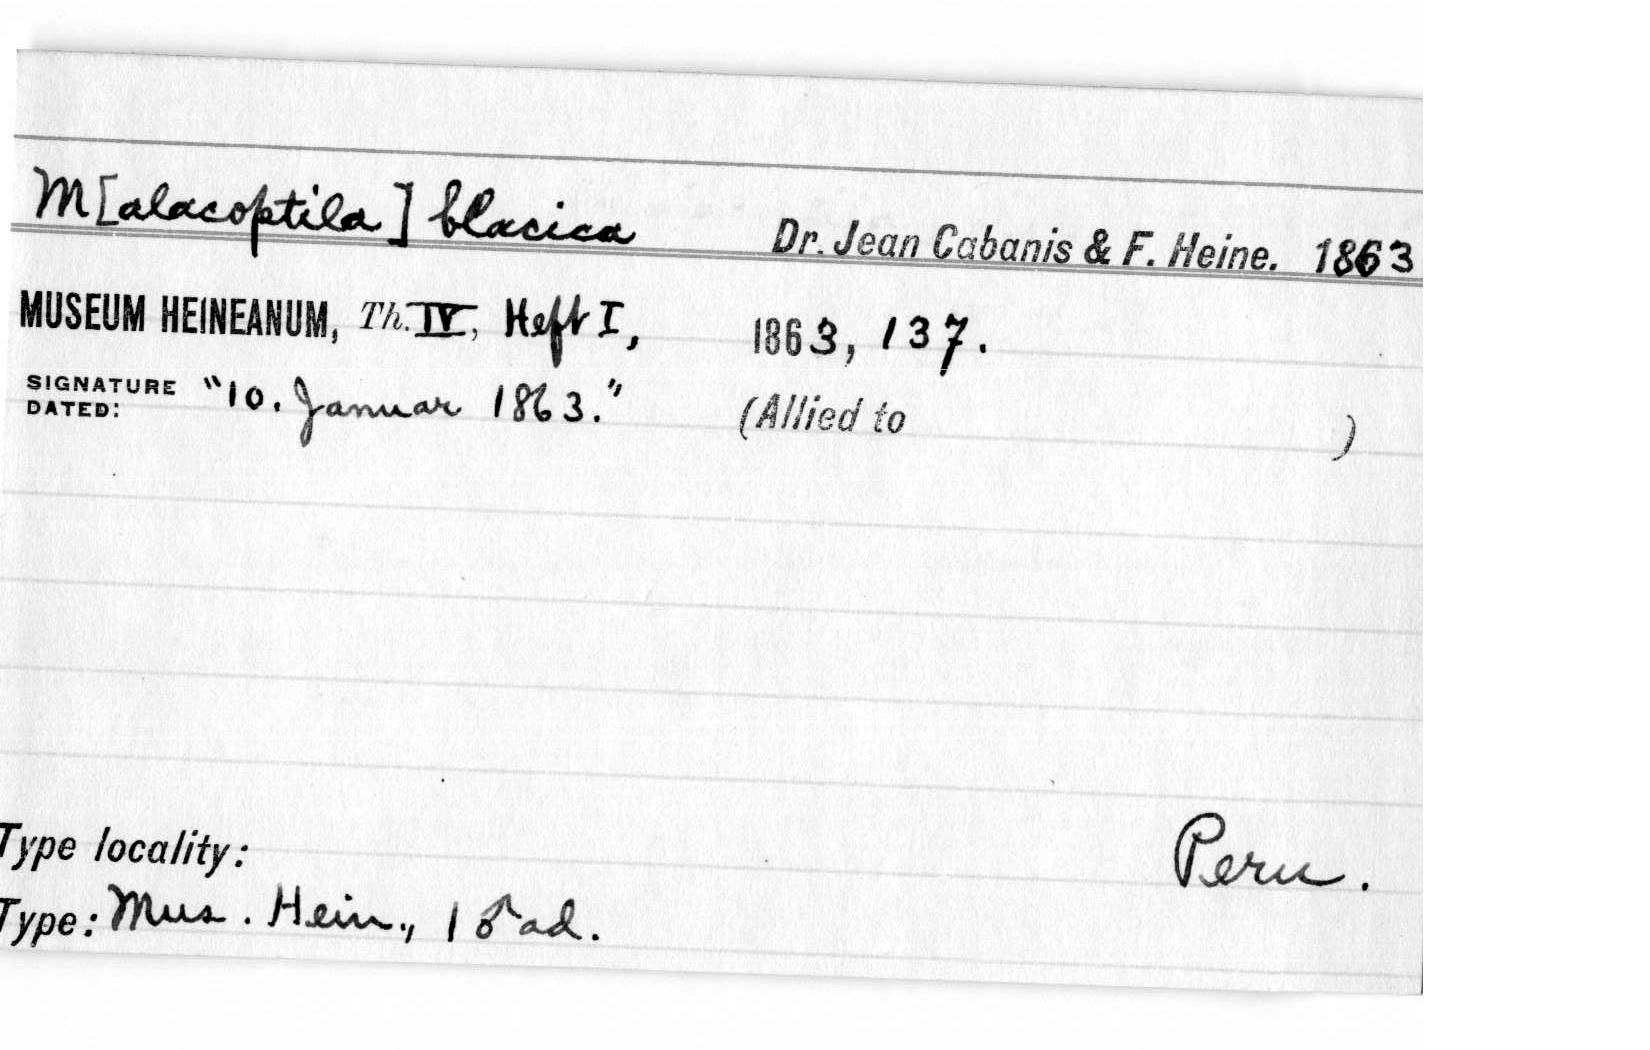 M[alacoptila] blacica Dr. Jean Cabanis & F. Heine. 1863
MUSEUM HEINEANUM, Th. IV, Heft I, 1863, 137.
SIGNATURE DATED: "10. Januar 1863." (Allied to )
Type locality: Peru.
Type: Mus. Hein., 1 ♂ ad.